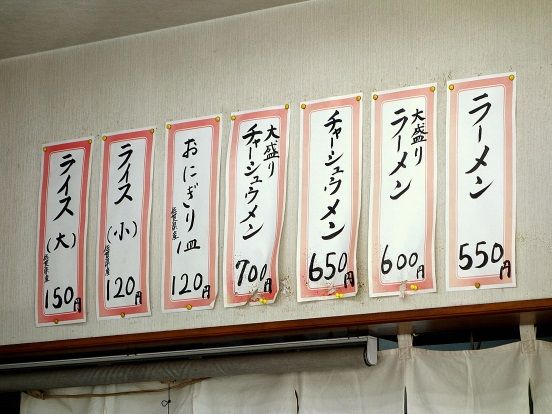 ラーメン 550円
大盛り ラーメン 600円
チャーシュウメン 650円
大盛り チャーシュウメン 700円
おにぎり一皿 佐賀県産 120円
ライス(小) 佐賀県産 120円
ライス(大) 佐賀県産 150円